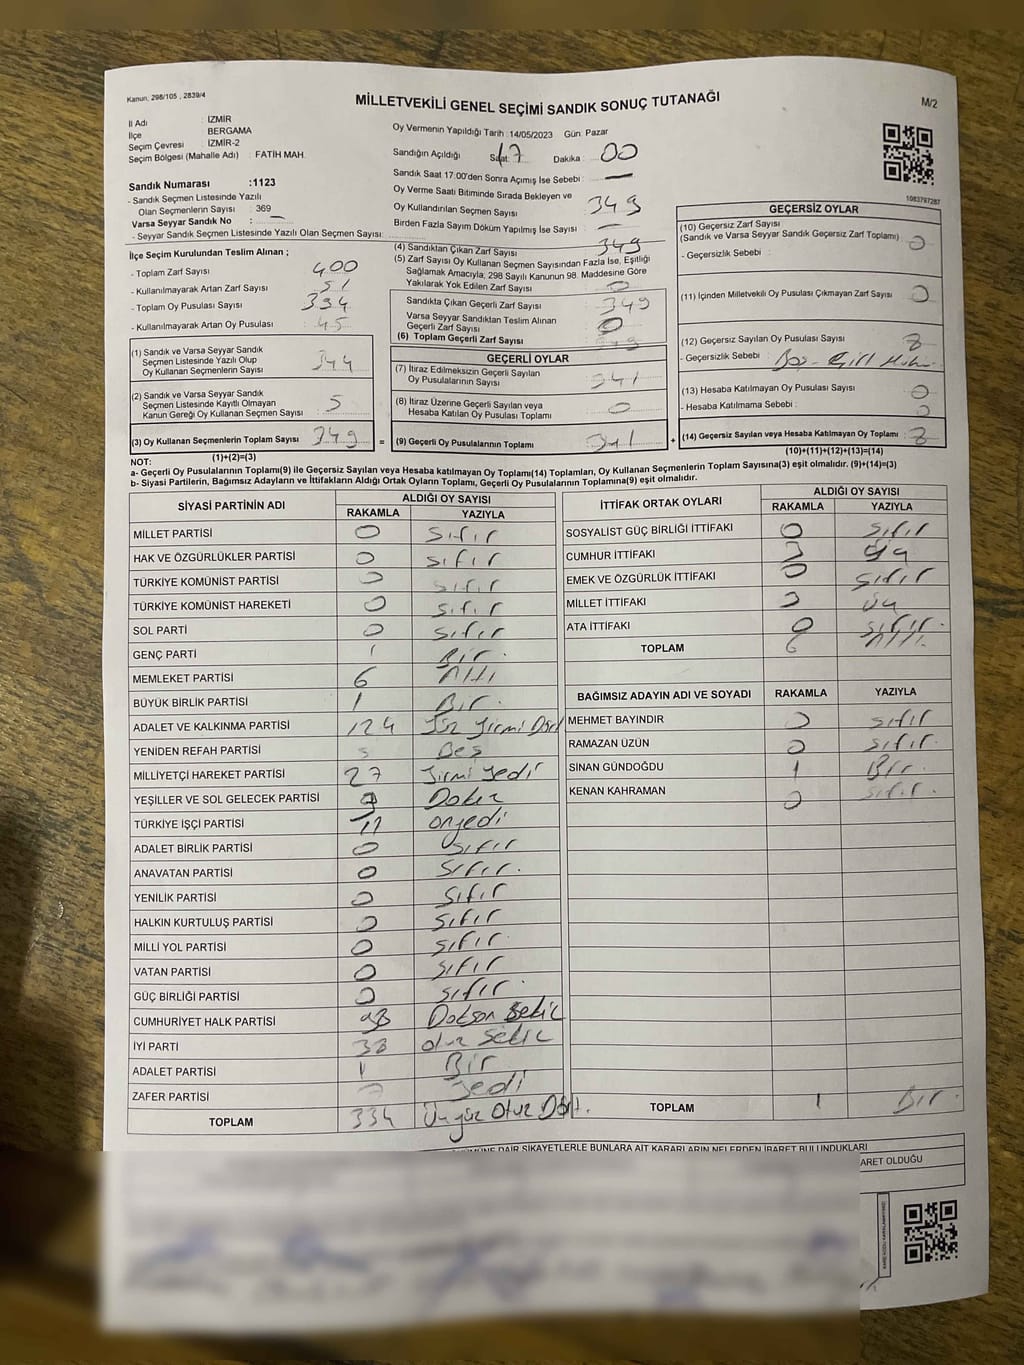 Kanun: 298/105 , 2839/4
MİLLETVEKİLİ GENEL SEÇİMİ SANDIK SONUÇ TUTANAĞI
M/2
İl Adı : İZMİR
İlçe BERGAMA
Seçim Çevresi : İZMİR-2
Seçim Bölgesi (Mahalle Adı) : FATİH MAH.
Oy Vermenin Yapıldığı Tarih : 14/05/2023 Gün: Pazar
Sandığın Açıldığı Saat: 17 Dakika : 00
Sandık Saat 17:00'den Sonra Açılmış İse Sebebi : —
Oy Verme Saati Bitiminde Sırada Bekleyen ve
Oy Kullandırılan Seçmen Sayısı : 349
Birden Fazla Sayım Döküm Yapılmış İse Sayısı : —
1083797287
Sandık Numarası :1123
- Sandık Seçmen Listesinde Yazılı
Olan Seçmenlerin Sayısı : 369
Varsa Seyyar Sandık No : —
- Seyyar Sandık Seçmen Listesinde Yazılı Olan Seçmen Sayısı:
İlçe Seçim Kurulundan Teslim Alınan ;
- Toplam Zarf Sayısı : 400
- Kullanılmayarak Artan Zarf Sayısı : 51
- Toplam Oy Pusulası Sayısı : 394
- Kullanılmayarak Artan Oy Pusulası : 45
(1) Sandık ve Varsa Seyyar Sandık
Seçmen Listesinde Yazılı Olup
Oy Kullanan Seçmenlerin Sayısı : 344
(2) Sandık ve Varsa Seyyar Sandık
Seçmen Listesinde Kayıtlı Olmayan
Kanun Gereği Oy Kullanan Seçmen Sayısı : 5
(3) Oy Kullanan Seçmenlerin Toplam Sayısı : 349
(1)+(2)=(3)
(4) Sandıktan Çıkan Zarf Sayısı : 349
(5) Zarf Sayısı Oy Kullanan Seçmen Sayısından Fazla İse, Eşitliği
Sağlamak Amacıyla, 298 Sayılı Kanunun 98. Maddesine Göre
Yakılarak Yok Edilen Zarf Sayısı : 0
Sandıkta Çıkan Geçerli Zarf Sayısı : 349
Varsa Seyyar Sandıktan Teslim Alınan
Geçerli Zarf Sayısı : 0
(6) Toplam Geçerli Zarf Sayısı : 349
GEÇERLİ OYLAR
(7) İtiraz Edilmeksizin Geçerli Sayılan
Oy Pusulalarının Sayısı : 341
(8) İtiraz Üzerine Geçerli Sayılan veya
Hesaba Katılan Oy Pusulası Toplamı : 0
= (9) Geçerli Oy Pusulalarının Toplamı : 341
GEÇERSİZ OYLAR
(10) Geçersiz Zarf Sayısı
(Sandık ve Varsa Seyyar Sandık Geçersiz Zarf Toplamı) : 0
- Geçersizlik Sebebi :
(11) İçinden Milletvekili Oy Pusulası Çıkmayan Zarf Sayısı : 0
(12) Geçersiz Sayılan Oy Pusulası Sayısı : 8
- Geçersizlik Sebebi : Boş
(13) Hesaba Katılmayan Oy Pusulası Sayısı : 0
- Hesaba Katılmama Sebebi : 0
+ (14) Geçersiz Sayılan veya Hesaba Katılmayan Oy Toplamı : 8
(10)+(11)+(12)+(13)=(14)
NOT:
a- Geçerli Oy Pusulalarının Toplamı(9) ile Geçersiz Sayılan veya Hesaba katılmayan Oy Toplamı(14) Toplamları, Oy Kullanan Seçmenlerin Toplam Sayısına(3) eşit olmalıdır. (9)+(14)=(3)
b- Siyasi Partilerin, Bağımsız Adayların ve İttifakların Aldığı Ortak Oyların Toplamı, Geçerli Oy Pusulalarının Toplamına(9) eşit olmalıdır.
SİYASİ PARTİNİN ADI ALDIĞI OY SAYISI
RAKAMLA YAZIYLA
MİLLET PARTİSİ 0 Sıfır
HAK VE ÖZGÜRLÜKLER PARTİSİ 0 Sıfır
TÜRKİYE KOMÜNİST PARTİSİ 0 Sıfır
TÜRKİYE KOMÜNİST HAREKETİ 0 Sıfır
SOL PARTİ 0 Sıfır
GENÇ PARTİ 1 Bir
MEMLEKET PARTİSİ 6 Altı
BÜYÜK BİRLİK PARTİSİ 1 Bir
ADALET VE KALKINMA PARTİSİ 124 Yüz Yirmi Dört
YENİDEN REFAH PARTİSİ 5 Beş
MİLLİYETÇİ HAREKET PARTİSİ 27 Yirmi yedi
YEŞİLLER VE SOL GELECEK PARTİSİ 9 Dokuz
TÜRKİYE İŞÇİ PARTİSİ 17 onyedi
ADALET BİRLİK PARTİSİ 0 Sıfır
ANAVATAN PARTİSİ 0 Sıfır
YENİLİK PARTİSİ 0 Sıfır
HALKIN KURTULUŞ PARTİSİ 0 Sıfır
MİLLİ YOL PARTİSİ 0 Sıfır
VATAN PARTİSİ 0 Sıfır
GÜÇ BİRLİĞİ PARTİSİ 0 Sıfır
CUMHURİYET HALK PARTİSİ 98 Doksan Sekiz
İYİ PARTİ 38 otuz Sekiz
ADALET PARTİSİ 1 Bir
ZAFER PARTİSİ 7 Yedi
TOPLAM 334 Üçyüz Otuz Dört.
İTTİFAK ORTAK OYLARI ALDIĞI OY SAYISI
RAKAMLA YAZIYLA
SOSYALİST GÜÇ BİRLİĞİ İTTİFAKI 0 Sıfır
CUMHUR İTTİFAKI 3 Üç
EMEK VE ÖZGÜRLÜK İTTİFAKI 0 Sıfır
MİLLET İTTİFAKI 3 Üç
ATA İTTİFAKI 0 Sıfır
TOPLAM 6 Altı
BAĞIMSIZ ADAYIN ADI VE SOYADI RAKAMLA YAZIYLA
MEHMET BAYINDIR 0 Sıfır
RAMAZAN ÜZÜN 0 Sıfır
SİNAN GÜNDOĞDU 1 Bir
KENAN KAHRAMAN 0 Sıfır
TOPLAM 1 Bir
DAİR ŞİKAYETLERLE BUNLARA AİT KARARLARIN NELERDEN İBARET BULUNDUKLARI
ARET OLDUĞU